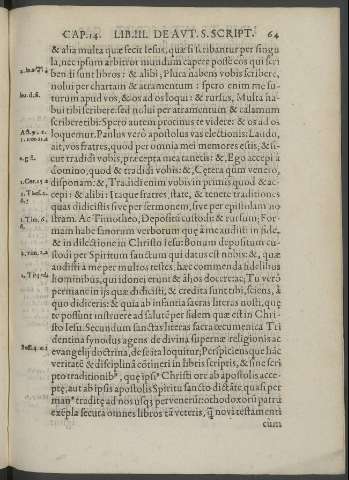 CAP. 14. LIB. III. DE AVT. S. SCRIPT. 64
& alia multa quæ fecit Iesus, quæ si scribantur per singu
la, nec ipsum arbitror mundum capere posse eos qui scri
bendi sunt libros: & alibi, Plura habens vobis scribere,
nolui per chartam & atramentum: spero enim me fu-
turum apud vos, & os ad os loqui: & rursus, Multa ha-
bui tibi scribere: sed nolui per atramentum & calamum
scribere tibi: Spero autem protinus te videre: & os ad os
loquemur. Paulus verò apostolus vas electionis: Laudo,
ait, vos fratres, quod per omnia mei memores estis, & si-
cut tradidi vobis, præcepta mea tenetis: &, Ego accepi à
domino, quod & tradidi vobis: &, Cętera quùm venero,
disponam: &, Tradidi enim vobis in primis quod & ac-
cepi: & alibi: Itaque fratres state, & tenete traditiones
quas didicistis sive per sermonem, sive per epistolam no
stram. Ac Timotheo, Depositū custodi: & rursum; For-
mam habe sanorum verborum quę à me audisti in fide,
& in dilectione in Christo Iesu: Bonum depositum cu-
stodi per Spiritum sanctum qui datus est nobis: &, quæ
audisti à me per multos testes, hæc commenda fidelibus
hominibus, qui idonei erunt & alios docere: ac, Tu verò
permane in ijs quæ didicisti, & credita sunt tibi, sciens, à
quo didiceris: & quia ab infantia sacras literas nosti, quę
te possunt instruere ad salutē per fidem quæ est in Chri-
sto Iesu. Secundum sanctas literas sacra œcumenica Tri
dentina synodus agens de divina supernæ religionis ac
evangelij doctrina, de ea ita loquitur, Perspiciensque hāc
veritatē & disciplinā cōtineri in libris scriptis, & sine scri
pto traditionibꝰ, quę ipsiꝰ Christi ore ab apostolis acce-
ptę, aut ab ipsis apostolis Spiritu sancto dictāte quasi per
manꝰ traditę ad nos usqꝫ pervenerūt: orthodoxorū patrū
exēpla secuta omnes libros tā veteris, q̃ novi testamenti
cùm